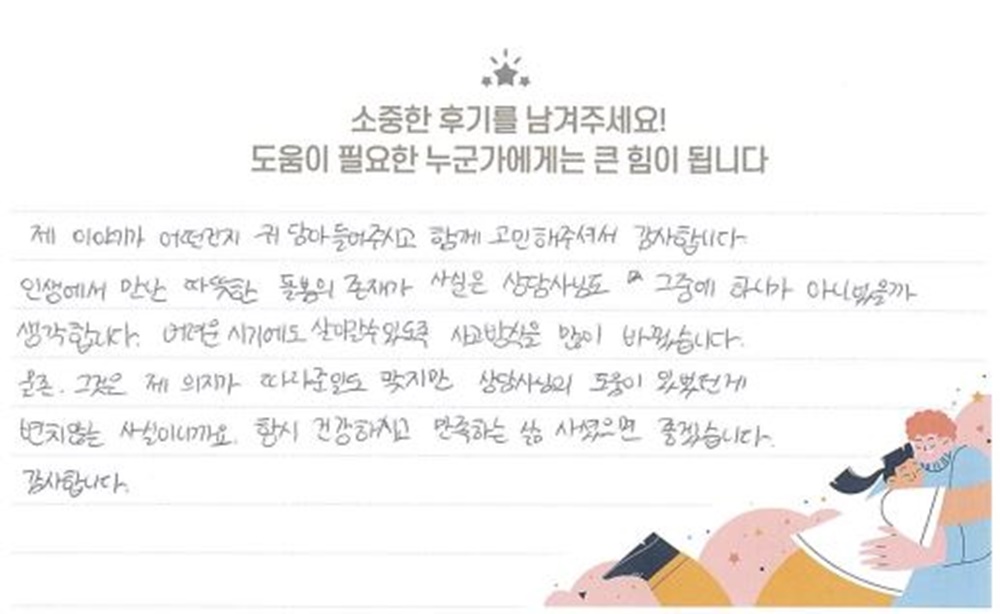 소중한 후기를 남겨주세요!
도움이 필요한 누군가에게는 큰 힘이 됩니다
제 이야기가 어떤건지 귀 담아 들어주시고 함께 고민해주셔서 감사합니다.
인생에서 만난 따뜻한 돌봄의 존재가 사실은 상담사님도 그중에 하나가 아니었을까
생각합니다. 어려운 시기에도 살아갈수있도록 사고방식을 많이 바꿨습니다.
물론. 그것은 제 의지가 따라준일도 맞지만 상담사님의 도움이 있었던게
변치않는 사실이니까요. 항시 건강하시고 만족하는 삶 사셨으면 좋겠습니다.
감사합니다.